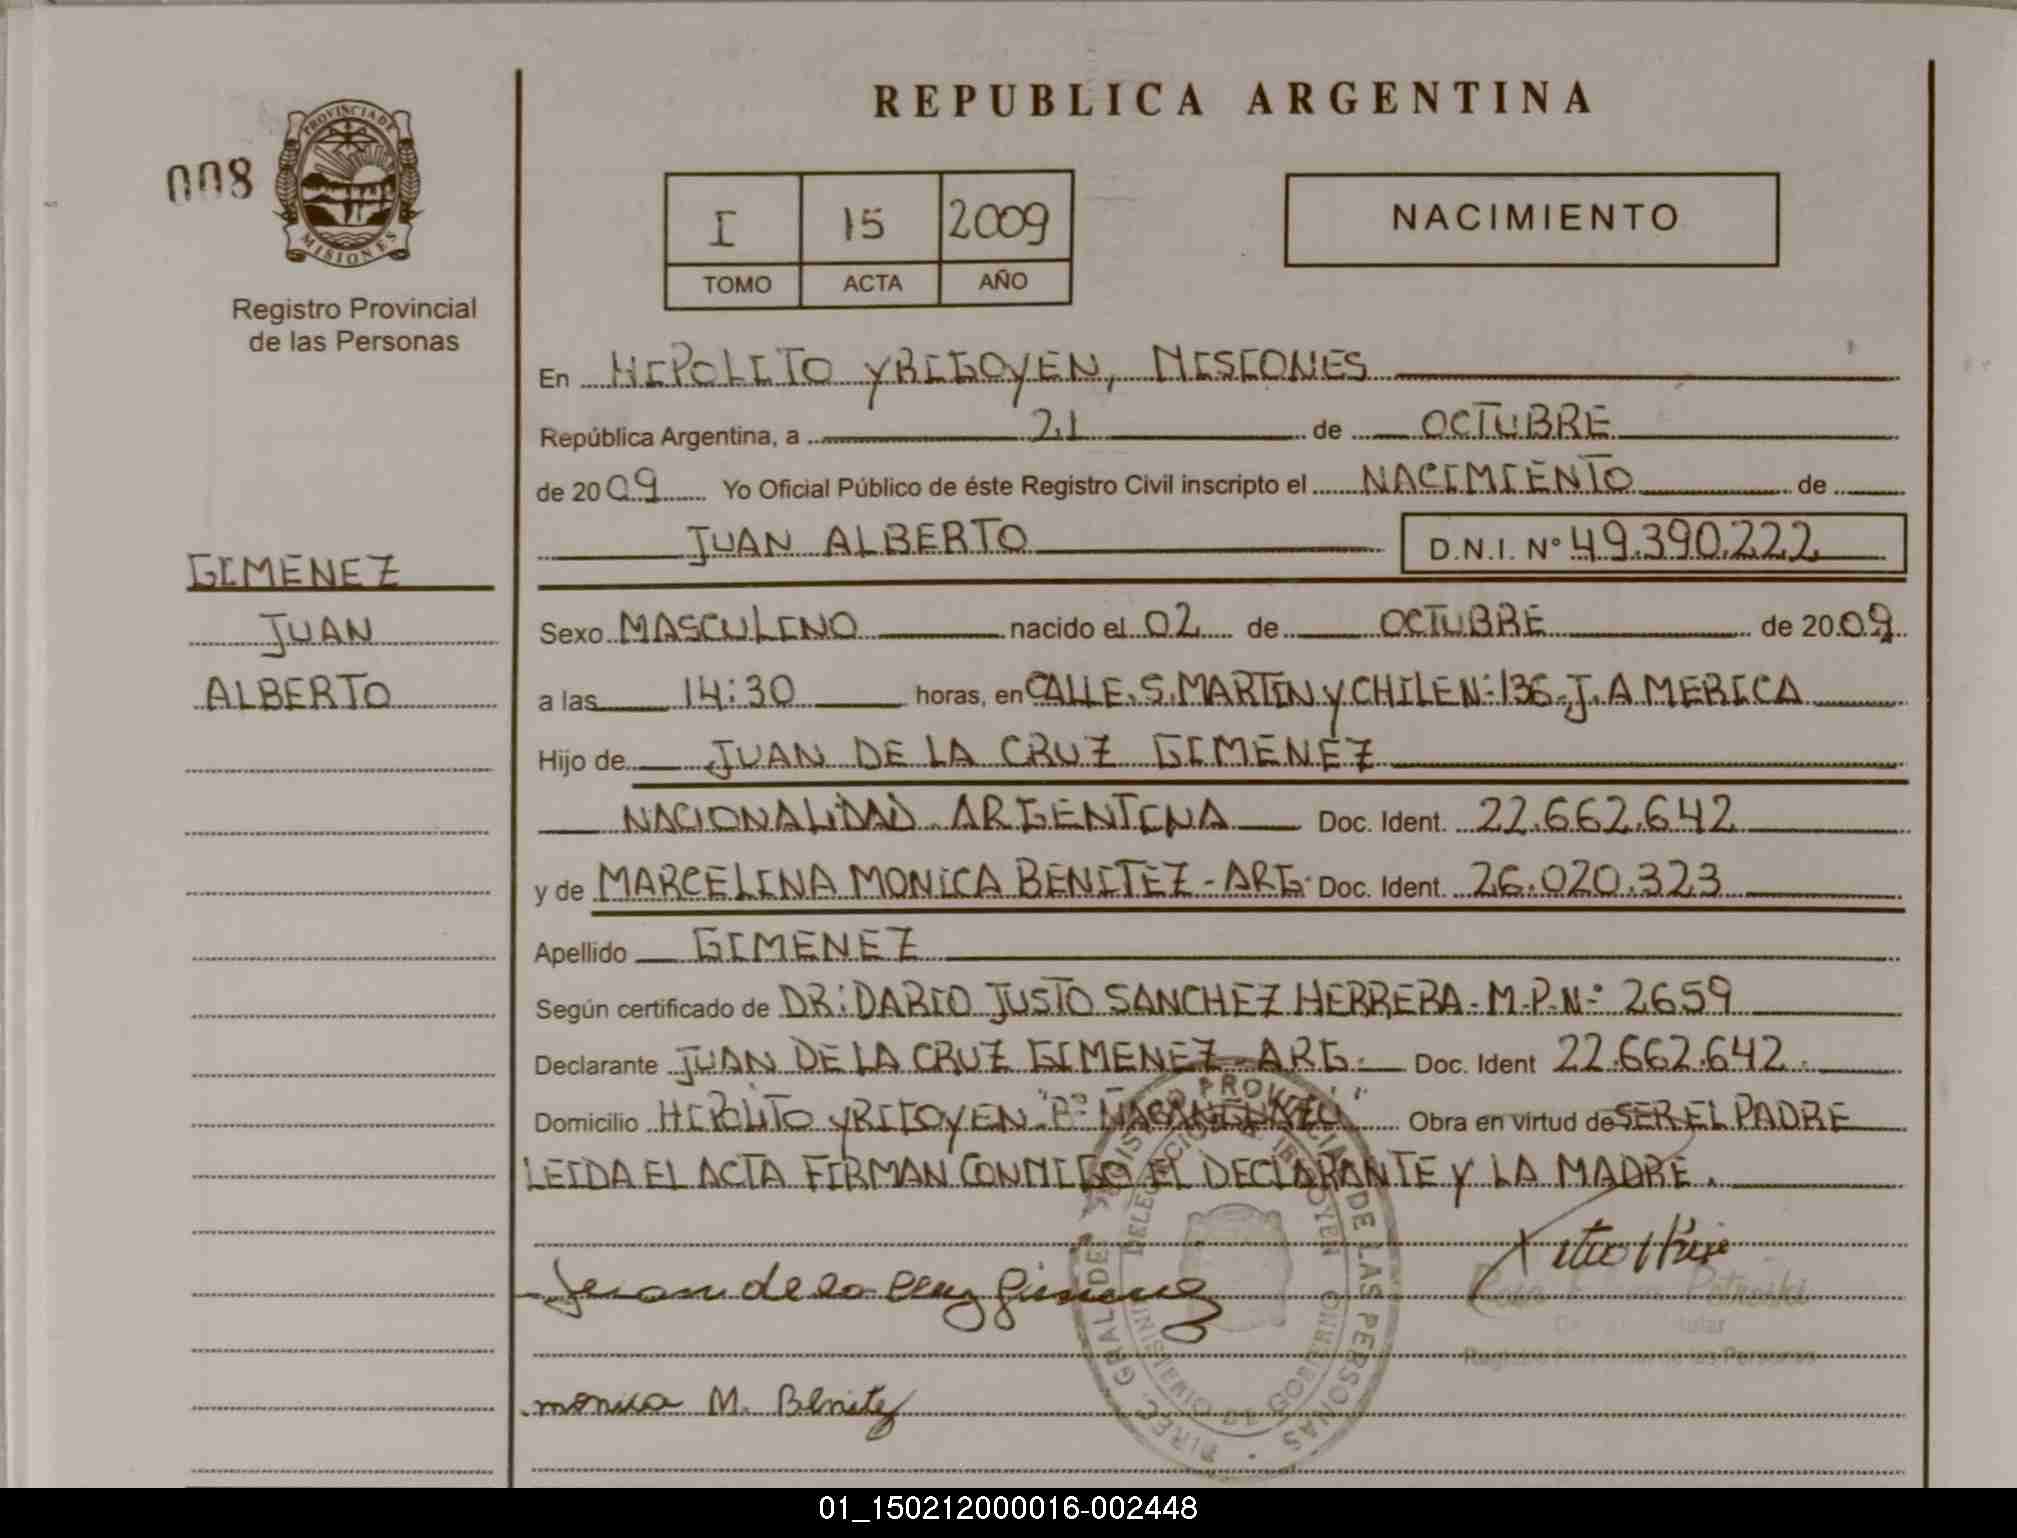 REPUBLICA ARGENTINA
008
PROVINCIA DE
MISIONES
Registro Provincial
de las Personas
I 15 2009
TOMO ACTA AÑO
NACIMIENTO
En HIPOLITO YRIGOYEN, MISIONES
República Argentina, a 21 de OCTUBRE
de 2009 Yo Oficial Público de éste Registro Civil inscripto el NACIMIENTO de
JUAN ALBERTO D.N.I. Nº 49.390.222
GIMENEZ
JUAN
ALBERTO
Sexo MASCULINO nacido el 02 de OCTUBRE de 2009
a las 14:30 horas, en CALLE.S.MARTIN Y CHILE Nº 136-J.AMERICA
Hijo de JUAN DE LA CRUZ GIMENEZ
NACIONALIDAD ARGENTINA Doc. Ident. 22.662.642
y de MARCELINA MONICA BENITEZ - ARG. Doc. Ident. 26.020.323
Apellido GIMENEZ
Según certificado de DR: DARIO JUSTO SANCHEZ HERRERA - M.P.Nº 2659
Declarante JUAN DE LA CRUZ GIMENEZ - ARG. Doc. Ident 22.662.642.
Domicilio HIPOLITO YRIGOYEN "Bº Obra en virtud de SER EL PADRE
LEIDA EL ACTA FIRMAN CONMIGO EL DECLARANTE Y LA MADRE.
Juan de la Cruz Gimenez
Monica M. Benitez
DIREC. GRAL DE REGISTRO PROVINCIAL DE LAS PERSONAS
MINISTERIO DE GOBIERNO
Petroski
Registro Provincial de las Personas
01_150212000016-002448